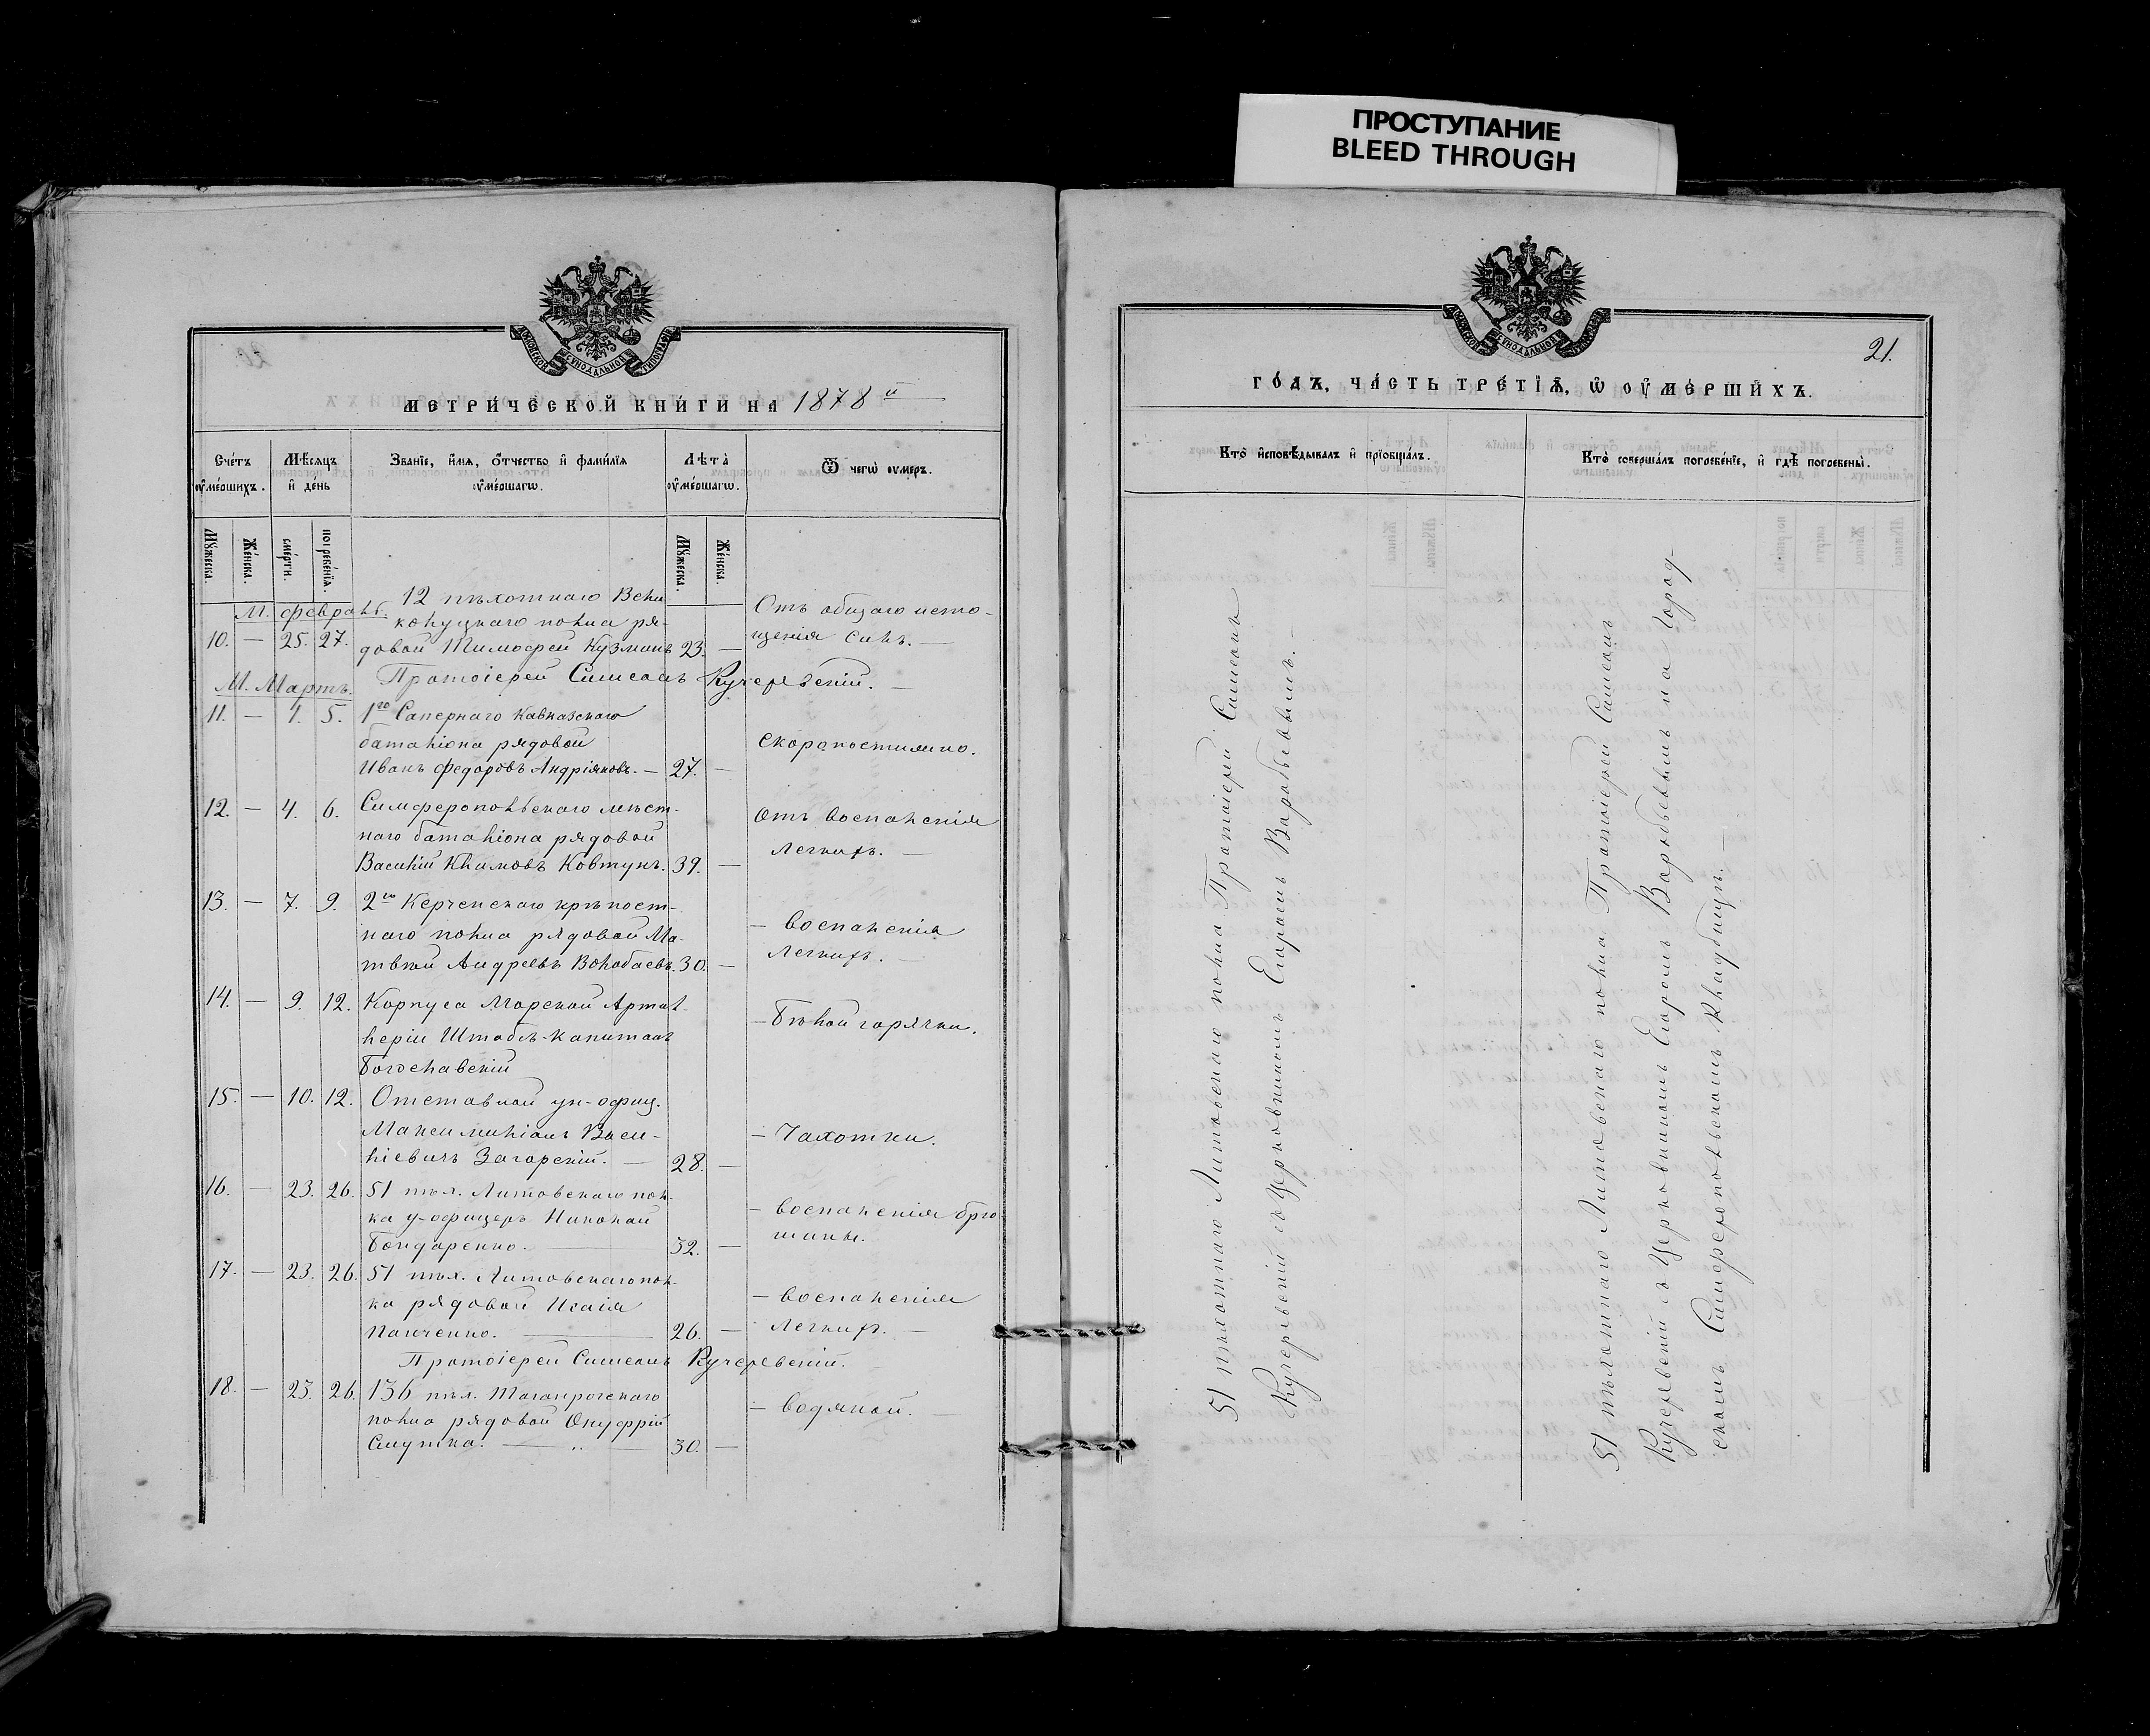 ПРОСТУПАНИЕ
BLEED THROUGH
МЕТРИЧЕСКОЙ КНИГИ НА 1878 й
Счетъ оумершихъ.
Мѣсяцъ и день
Званіе, имя, отчество и фамилія оумершагѡ.
Лѣта оумершагѡ.
Ѿ чегѡ оумеръ.
Мужеска.
Женска.
смерти.
погребенія.
Мужеска.
Женска.
М. Февраль.
12 пѣхотнаго Вели
колуцкаго полка ря-
10. — 25. 27. довой Тимофей Кузминъ 23. —
Отъ общаго исто-
щенія силъ. —
Протоіерей Симеонъ Кучеревскій. —
М. Мартъ.
11. — 1. 5. 1го Сапернаго Кавказскаго
баталіона рядовой
Иванъ Федоровъ Андріяновъ. — 27. —
Скоропостижно.
12. — 4. 6. Симферопольскаго мѣст-
наго баталіона рядовой
Василій Климовъ Ковтунъ. 39. —
Отъ воспаленія
легкихъ. —
13. — 7. 9. 2го Керченскаго крѣпост-
наго полка рядовой Ма-
твѣй Андреевъ Волобаевъ. 30. —
— воспаленія
легкихъ. —
14. — 9. 12. Корпуса Морской Артил-
леріи Штабсъ-Капитанъ
Богославскій
— Бѣлой горячки.
15. — 10. 12. Отставной ун-офиц.
Максимиліанъ Васи-
ліевичъ Загорскій. — 28. —
— Чахотки.
16. — 23. 26. 51 пѣх. Литовскаго пол-
ка у-офицеръ Николай
Бондаренко. — 32. —
— воспаленія брю-
шины.
17. — 23. 26. 51 пѣх. Литовскаго пол-
ка рядовой Исаія
Панченко. — 26. —
— воспаленія
легкихъ. —
Протоіерей Симеонъ Кучеревскій.
18. — 23. 26. 136 пѣх. Таганрогскаго
полка рядовой Онуфрій
Смутка. — 30. —
— водяной. —
21.
ГОДЪ, ЧАСТЬ ТРЕТІЯ, Ѡ ОУМЕРШИХЪ.
Кто исповѣдывалъ и пріобщалъ.
Кто совершалъ погребеніе, и гдѣ погребены.
51 пѣхотнаго Литовскаго полка Протоіерей Симеонъ
Кучеревскій съ Церковникомъ Егоромъ Воробьевымъ. —
51 пѣхотнаго Литовскаго полка Протоіерей Симеонъ
Кучеревскій съ Церковникомъ Егоромъ Воробьевымъ на Город-
скомъ Симферопольскомъ Кладбищѣ. —